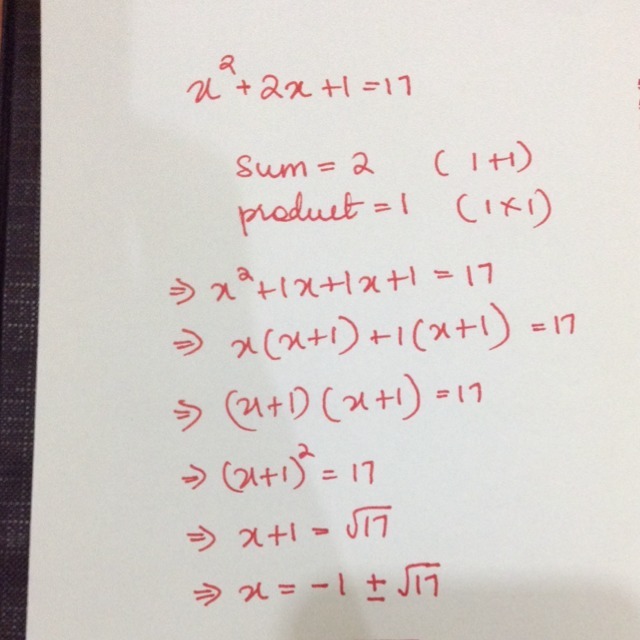 x² + 2x + 1 = 17
Sum = 2 ( 1+1)
product = 1 (1×1)
⇒ x²+1x+1x+1 = 17
⇒ x(x+1) +1(x+1) = 17
⇒ (x+1) (x+1) = 17
⇒ (x+1)² = 17
⇒ x+1 = √17
⇒ x = -1 ± √17